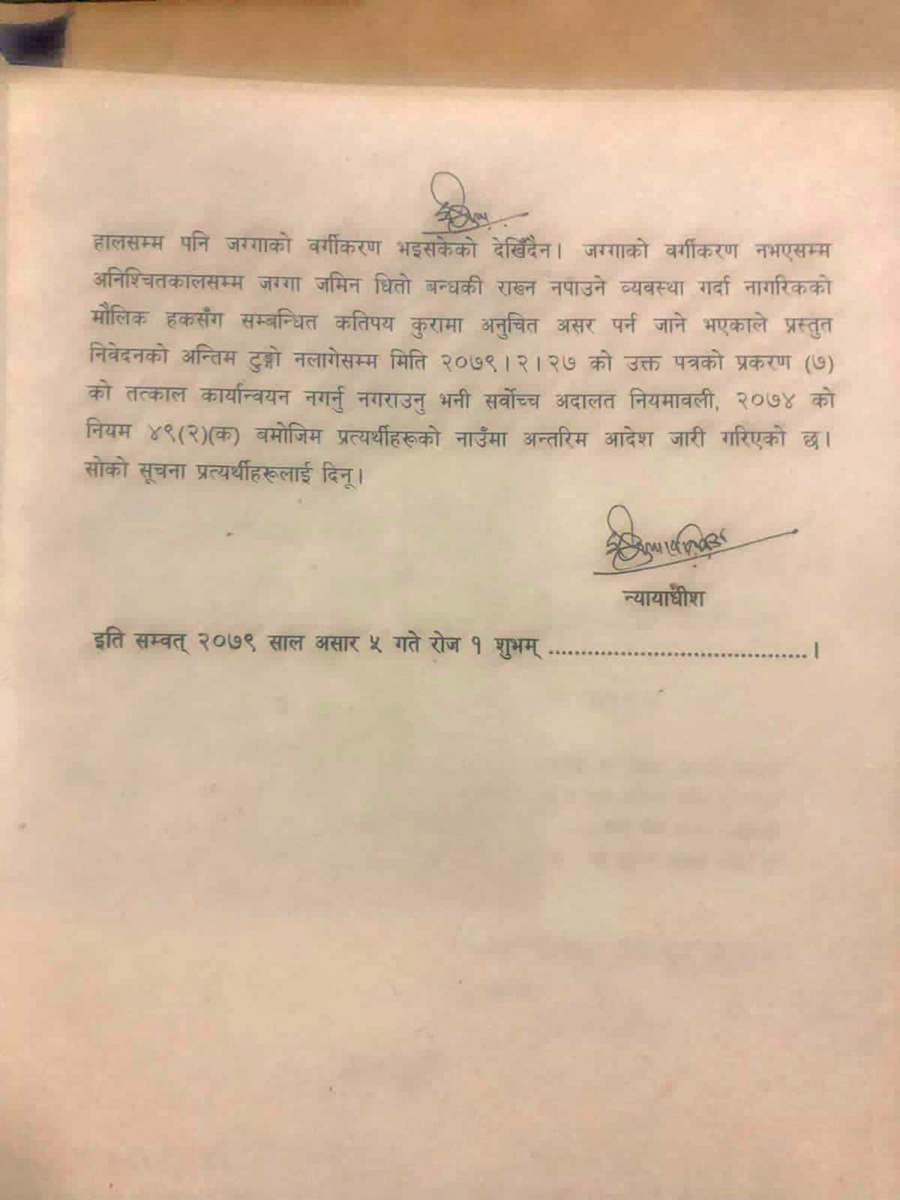 हालसम्म पनि जग्गाको वर्गीकरण भइसकेको देखिँदैन। जग्गाको वर्गीकरण नभएसम्म
अनिश्चितकालसम्म जग्गा जमिन धितो बन्धकी राख्न नपाउने व्यवस्था गर्दा नागरिकको
मौलिक हकसँग सम्बन्धित कतिपय कुरामा अनुचित असर पर्न जाने भएकाले प्रस्तुत
निवेदनको अन्तिम टुङ्गो नलागेसम्म मिति २०७९।२।२७ को उक्त पत्रको प्रकरण (७)
को तत्काल कार्यान्वयन नगर्नु नगराउनु भनी सर्वोच्च अदालत नियमावली, २०७४ को
नियम ४९(२)(क) बमोजिम प्रत्यर्थीहरूको नाउँमा अन्तरिम आदेश जारी गरिएको छ।
सोको सूचना प्रत्यर्थीहरूलाई दिनू।
न्यायाधीश
इति सम्वत् २०७९ साल असार ५ गते रोज १ शुभम् ........................................।